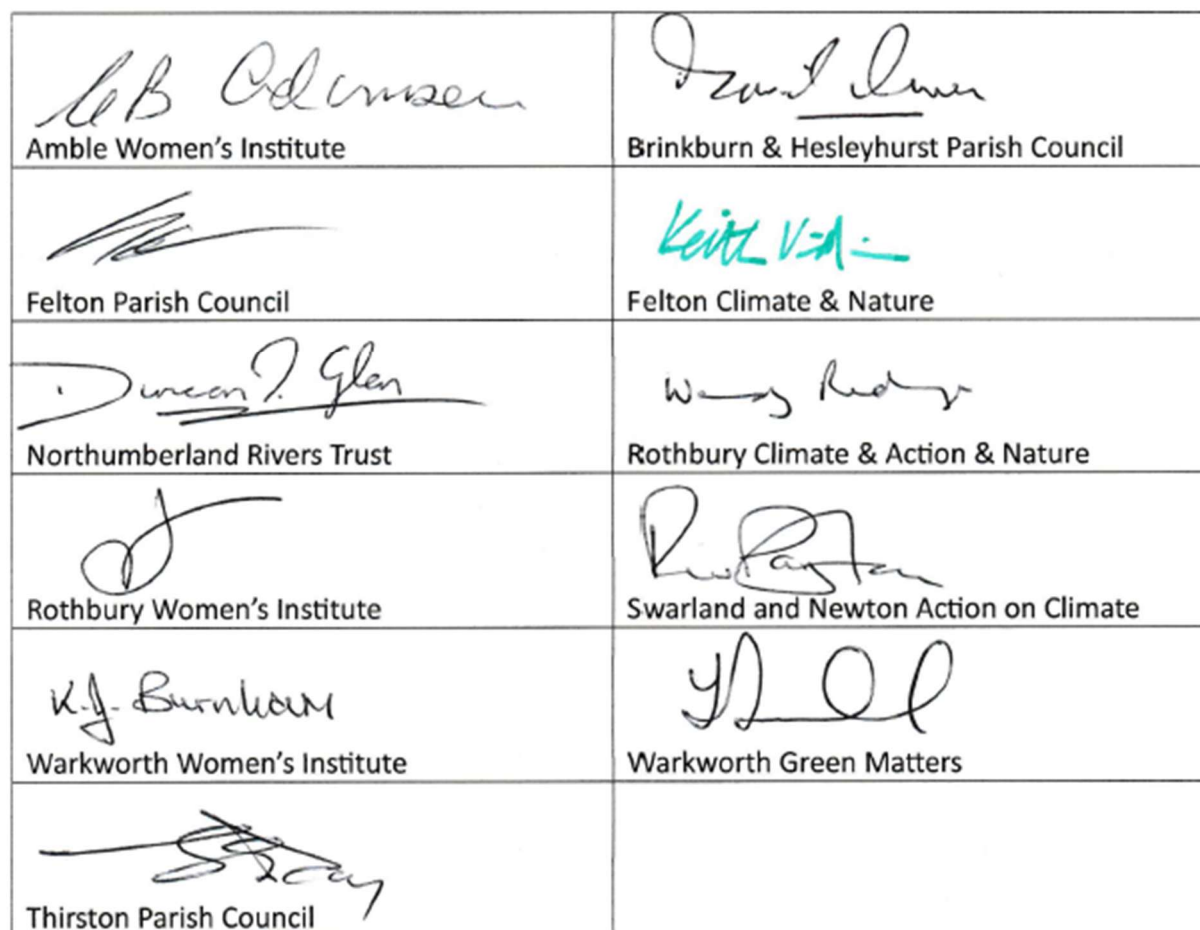 Adamsen
Amble Women's Institute
Brinkburn & Hesleyhurst Parish Council
Felton Parish Council
Keith
Felton Climate & Nature
Duncan J. Glen
Northumberland Rivers Trust
Wendy
Rothbury Climate & Action & Nature
Rothbury Women's Institute
Swarland and Newton Action on Climate
K.J. Burnham
Warkworth Women's Institute
Warkworth Green Matters
Thirston Parish Council